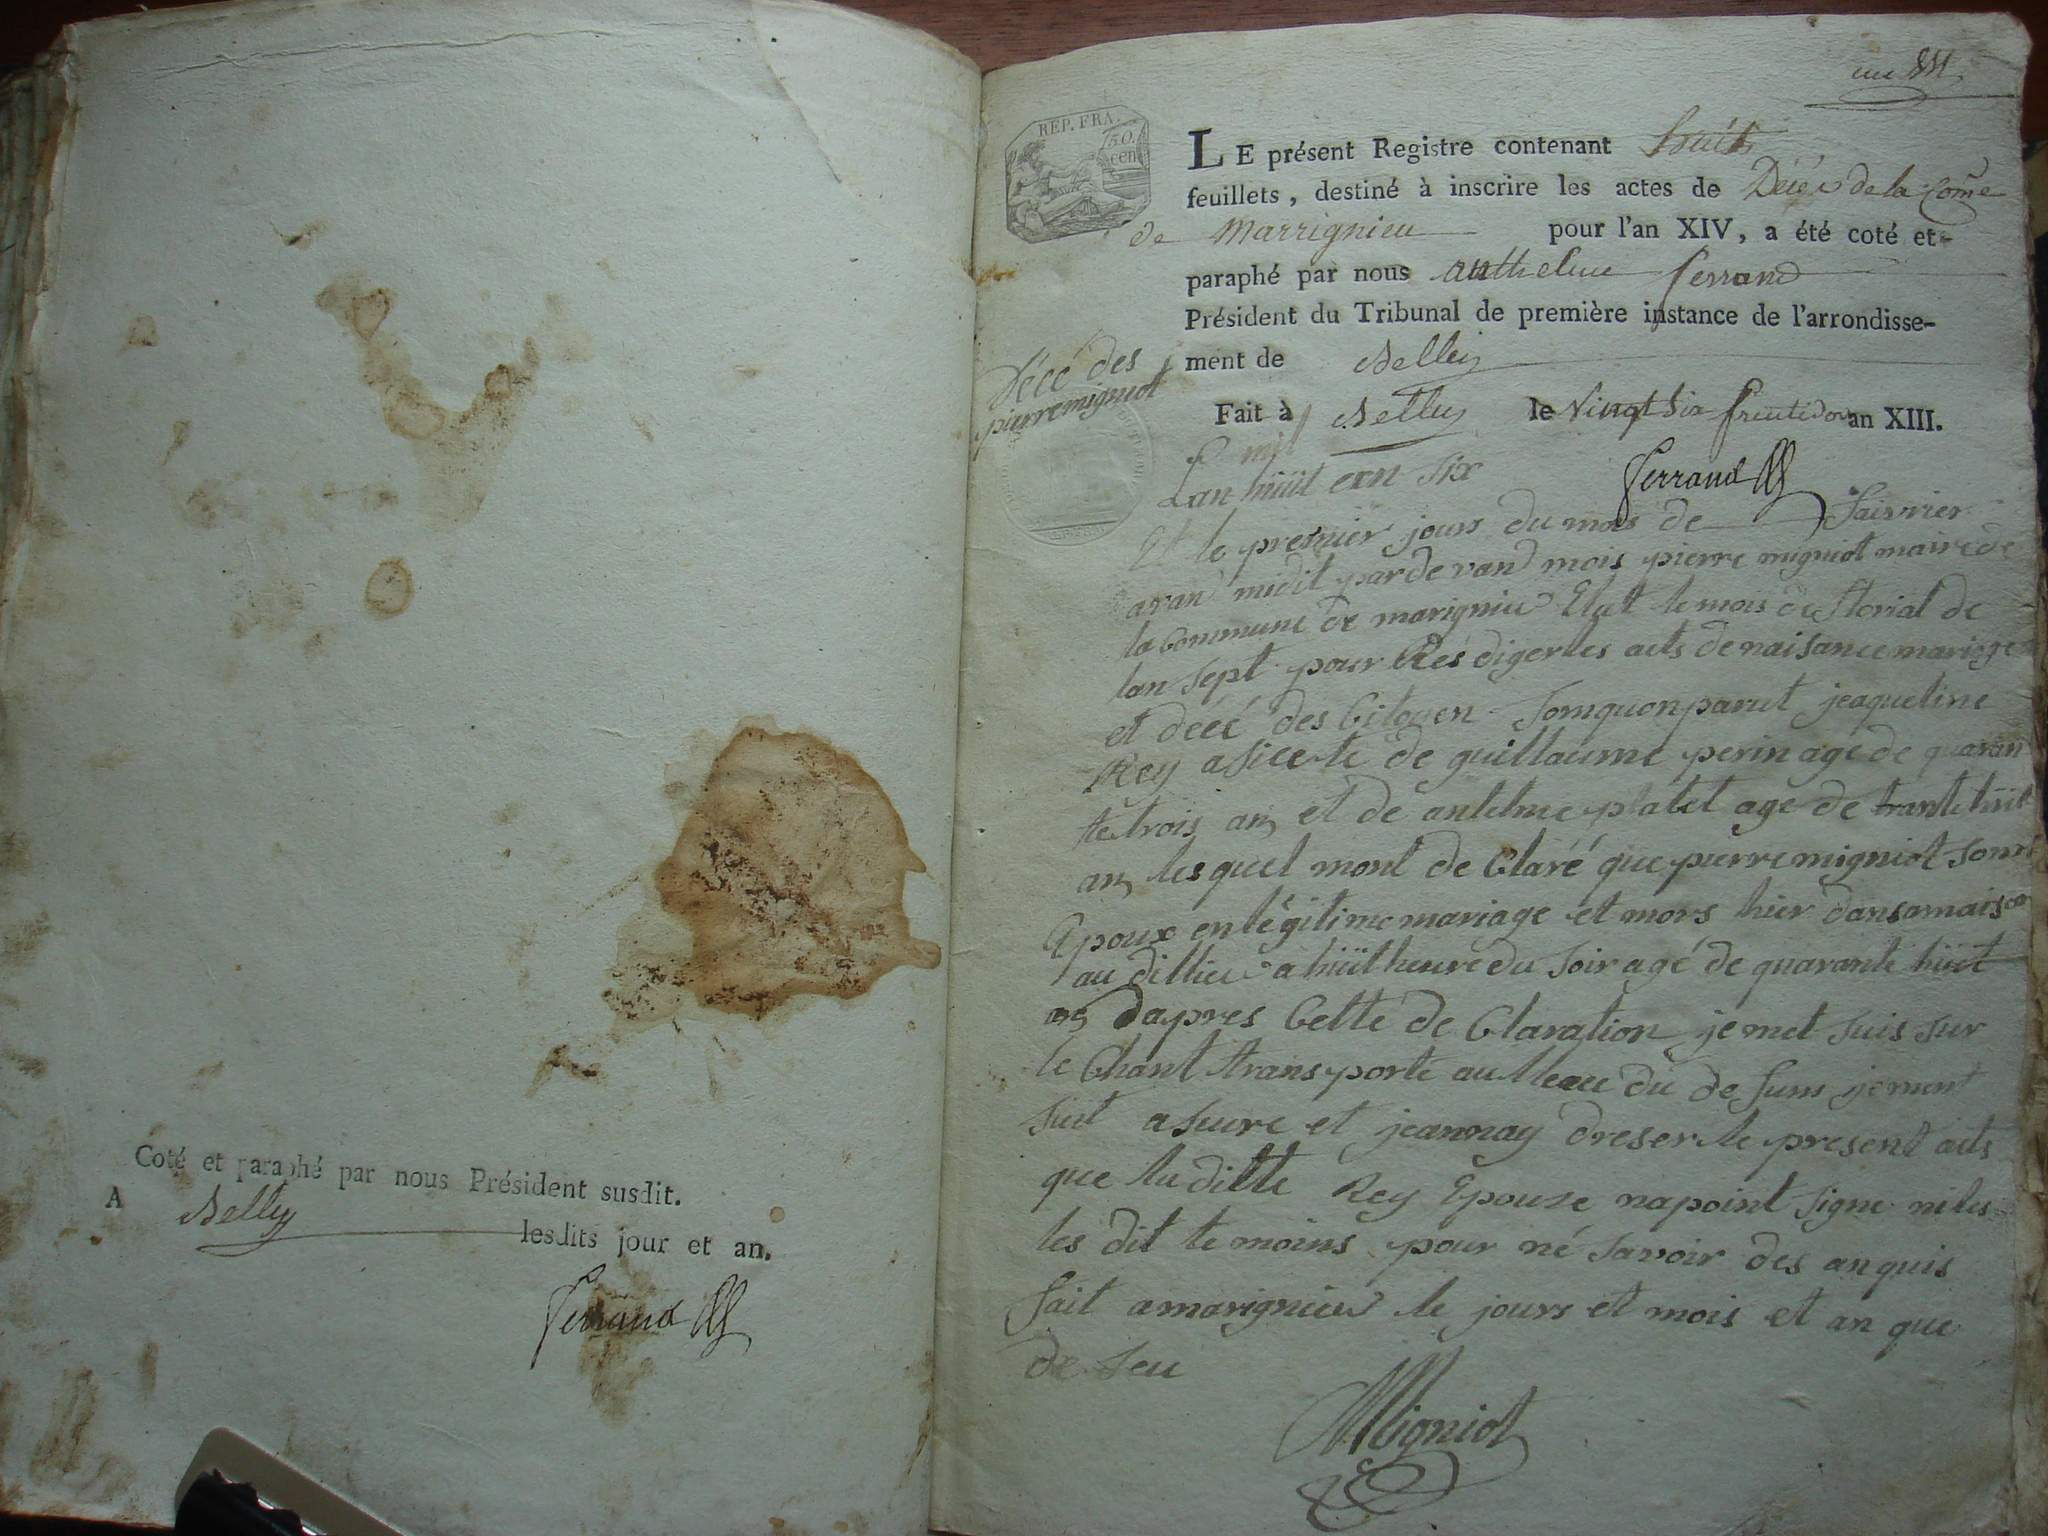 Coté et paraphé par nous Président susdit.
A Belley lesdits jour et an.
Ferrand
une
REP. FRA.
50.
cen
LE présent Registre contenant huit
feuillets, destiné à inscrire les actes de Décès de la Comē
de Marrignieu pour l'an XIV, a été coté et
paraphé par nous anthelme ferrand
Président du Tribunal de première instance de l'arrondisse-
ment de Belley
Fait à Belley le Vingt six fructidor an XIII.
Ferrand
Décé des
pierre migniot
mil
Lan huit cen six
Et le premier jours du mois de Sairvier
avan midit par de vand mois pierre migniot maire de
la Commune de marignieu Elut le mois de florial de
lan sept pour Rés diger les acts de naisance mariage
et décé des Citoyen Somquonparut jeaqueline
Rey asicete de guillaume perin age de quaran
te trois an et de antelme platet age de trante huit
an les quel mont de Claré que pierre migniot Sont
Epoux en légitime mariage et mors hier dansamaison
au dillieu a huit heure du Soir agé de quarante huit
an Dapres Cette de Claration je met suis sur
le Chant transporte au lleau du de funs je ment
suit aseure et jeannay dreser le present acts
que la ditte Rey Epouze napoint Signe niles
les dit temoins pour né Savoir des anquis
fait amarignieu le jours et mois et an que
de seu
Migniot